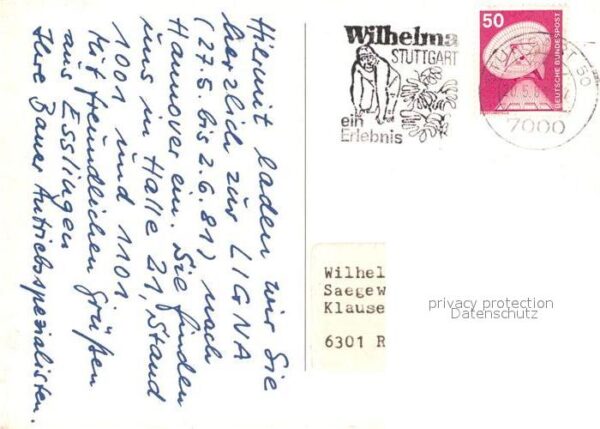 Hiermit laden wir Sie
herzlich zur LIGNA
(27.5. bis 2.6.81) nach
Hannover ein. Sie finden
uns in Halle 21, Stand
1001 und 1101
Mit freundlichen Grüßen
aus Esslingen
Ihre Bauer Antriebsspezialisten.
Wilhelma
STUTTGART
ein
Erlebnis
50
DEUTSCHE BUNDESPOST
50
7000
Wilhel
Saegew
Klause
6301 R
privacy protection
Datenschutz